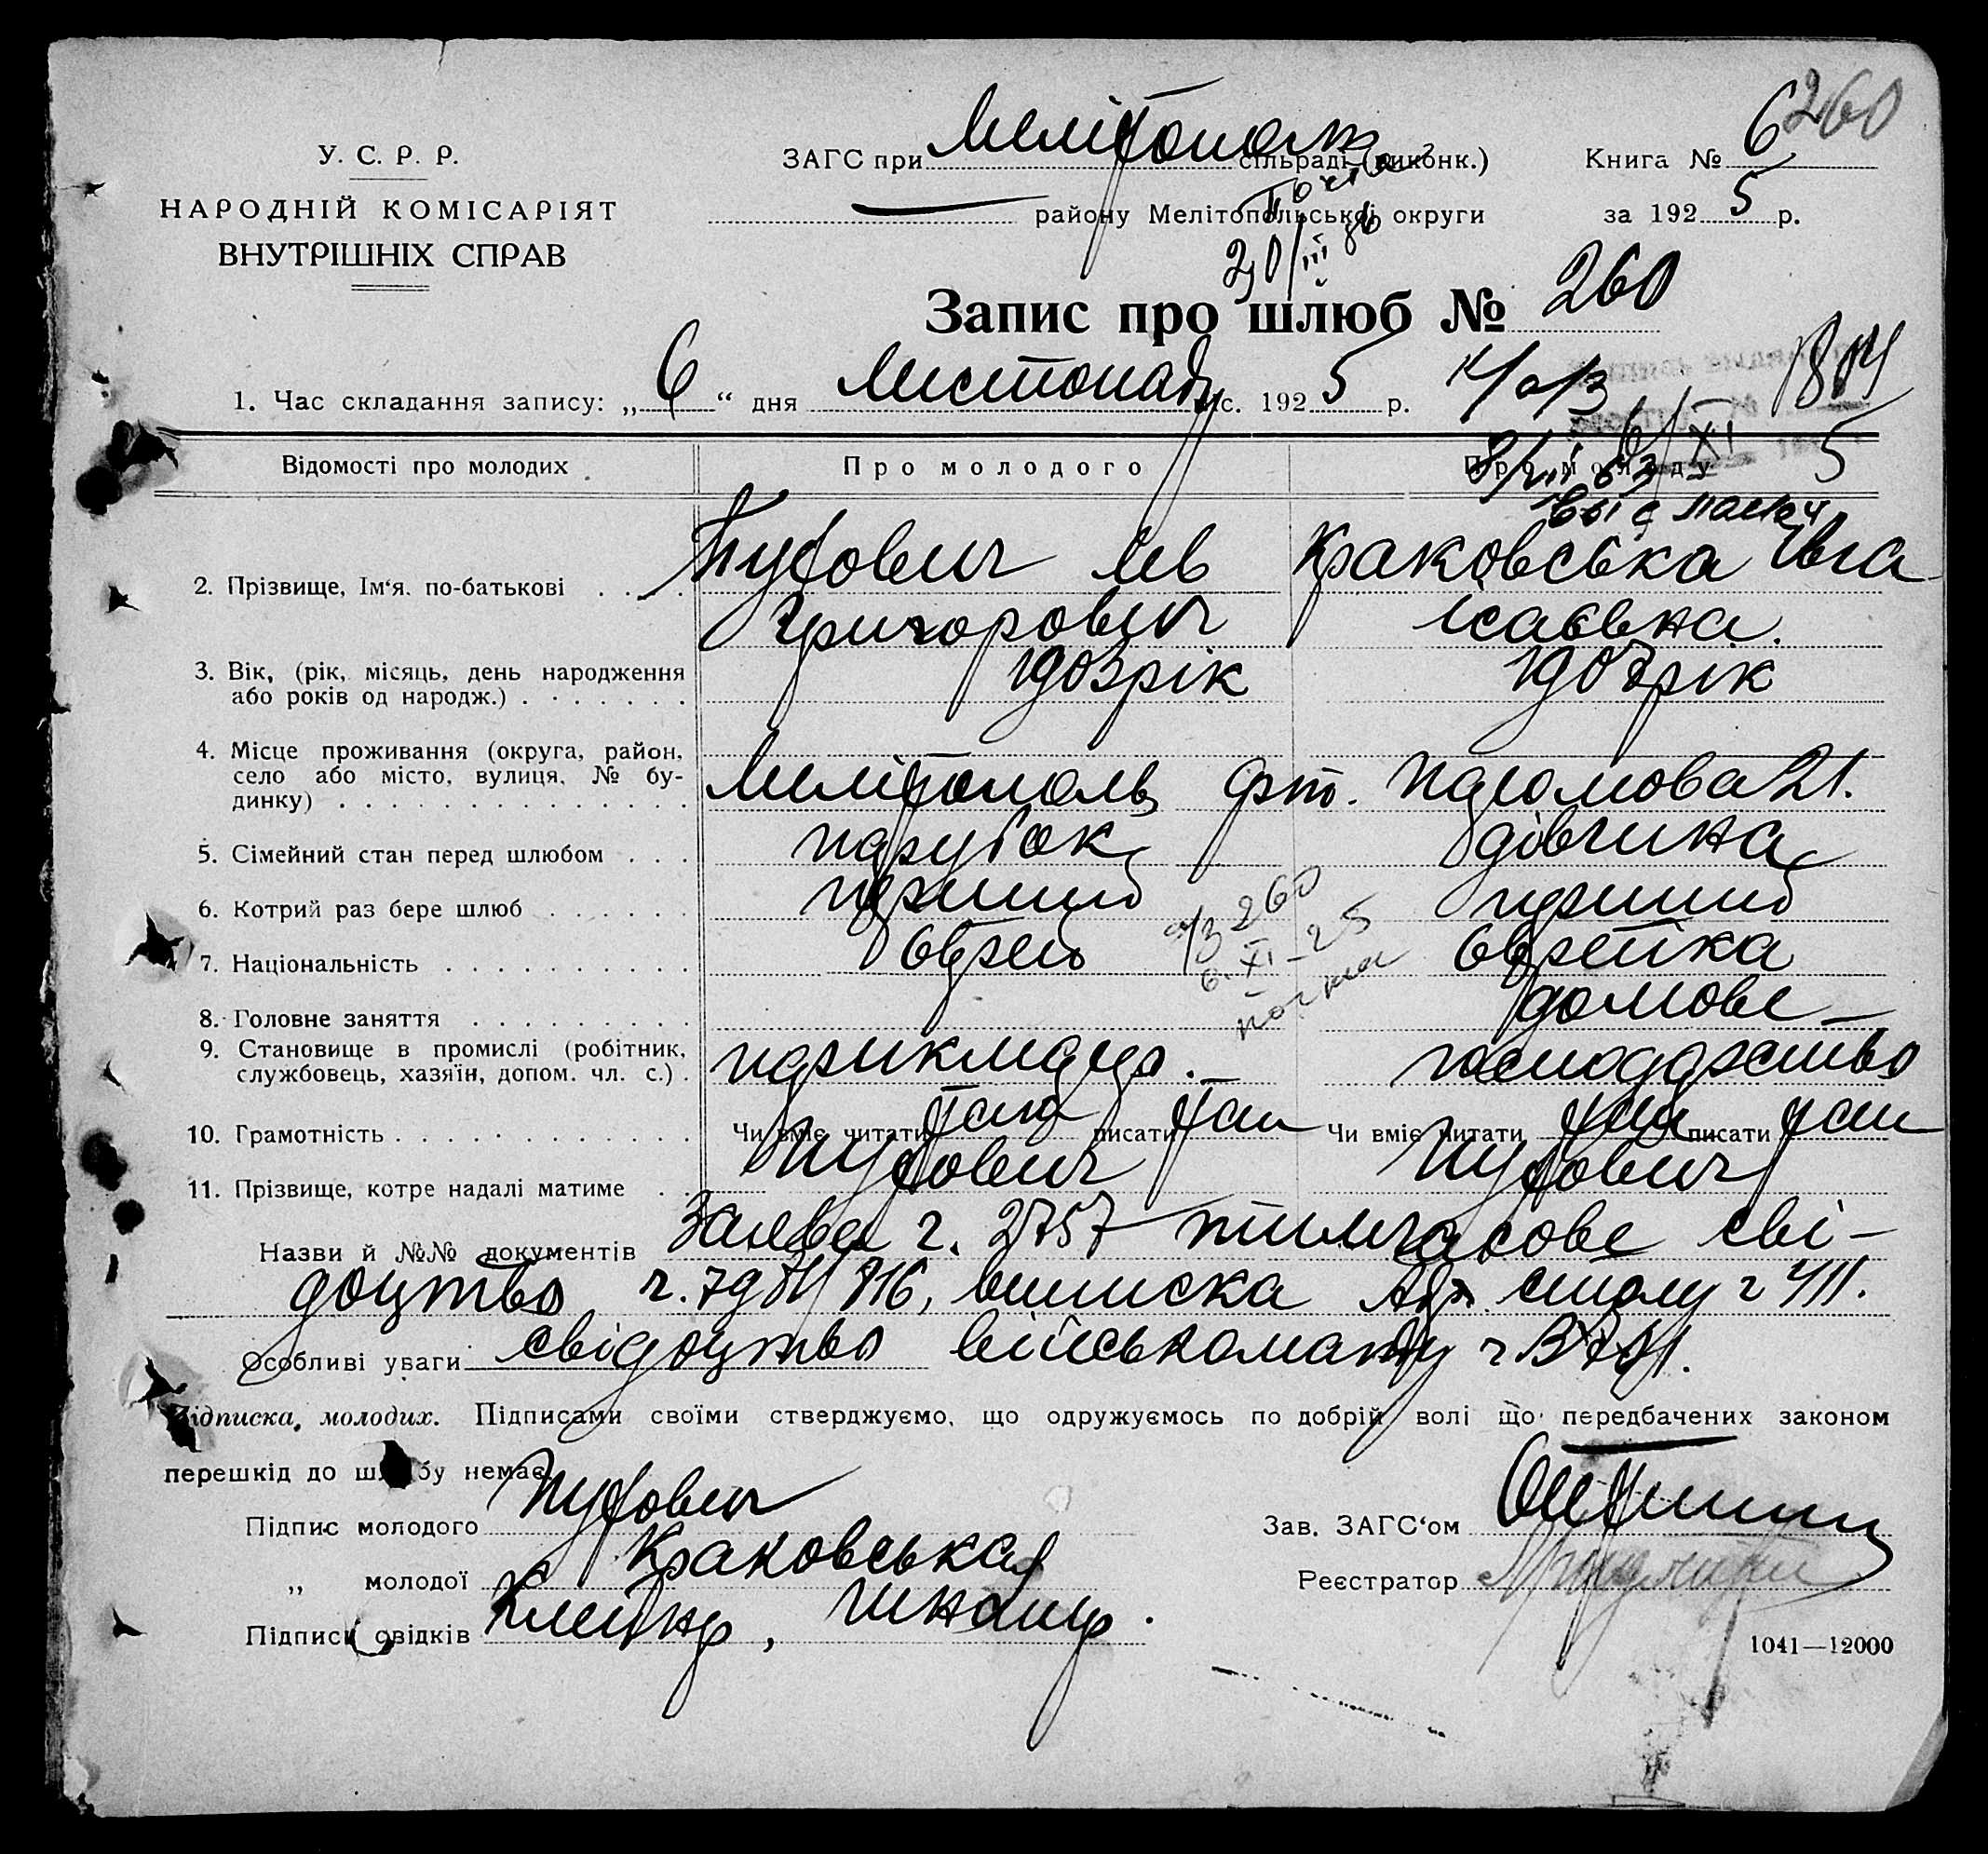 260
У. С. Р. Р.
НАРОДНІЙ КОМІСАРІЯТ
ВНУТРІШНІХ СПРАВ
ЗАГС при Мелітопольск сільраді (виконк.)
Книга № 6
району Мелітопольської округи
за 1925 р.
Запис про шлюб № 260
1. Час складання запису: „6“ дня Листопаду міс. 1925 р.
Відомості про молодих
Про молодого
Про молоду
2. Прізвище, Ім‘я, по-батькові
Пудович Лев
Краковська Івга
Григорович
Ісаєвна.
3. Вік, (рік, місяць, день народження
або років од народж.)
1903 рік
1907 рік
4. Місце проживання (округа, район,
село або місто, вулиця, № бу-
динку)
Мелітополь Фрт. 21.
5. Сімейний стан перед шлюбом
парубок
дівчина
6. Котрий раз бере шлюб
перший
перший
7. Національність
Єврей
Єврейка
260
6. XI-25
8. Головне заняття
домове-
9. Становище в промислі (робітник,
службовець, хазяїн, допом. чл. с.)
прикмаць.
господарство
10. Грамотність
Чи вміє читати так писати так
Чи вміє читати так писати так
11. Прізвище, котре надалі матиме
Пудович
Пудович
Назви й №№ документів Заява ч. 2757 тимчасове сві-
доцтво ч. 816, виписка Адр. столу ч
Особливі уваги свідоцтво військомату ч
Підписка молодих. Підписами своїми стверджуємо, що одружуємось по добрій волі що передбачених законом
перешкід до шлюбу немає.
Підпис молодого Пудович
Зав. ЗАГС‘ом
„ молодої Краковська
Реєстратор
Підписи свідків Клейнер,
1041—12000